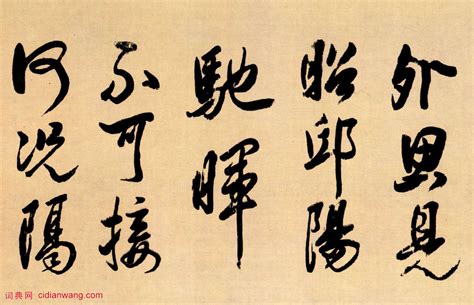 外思見
昭邱陽
馳暉
不可接
何況隔
词典网 cidianwang.com